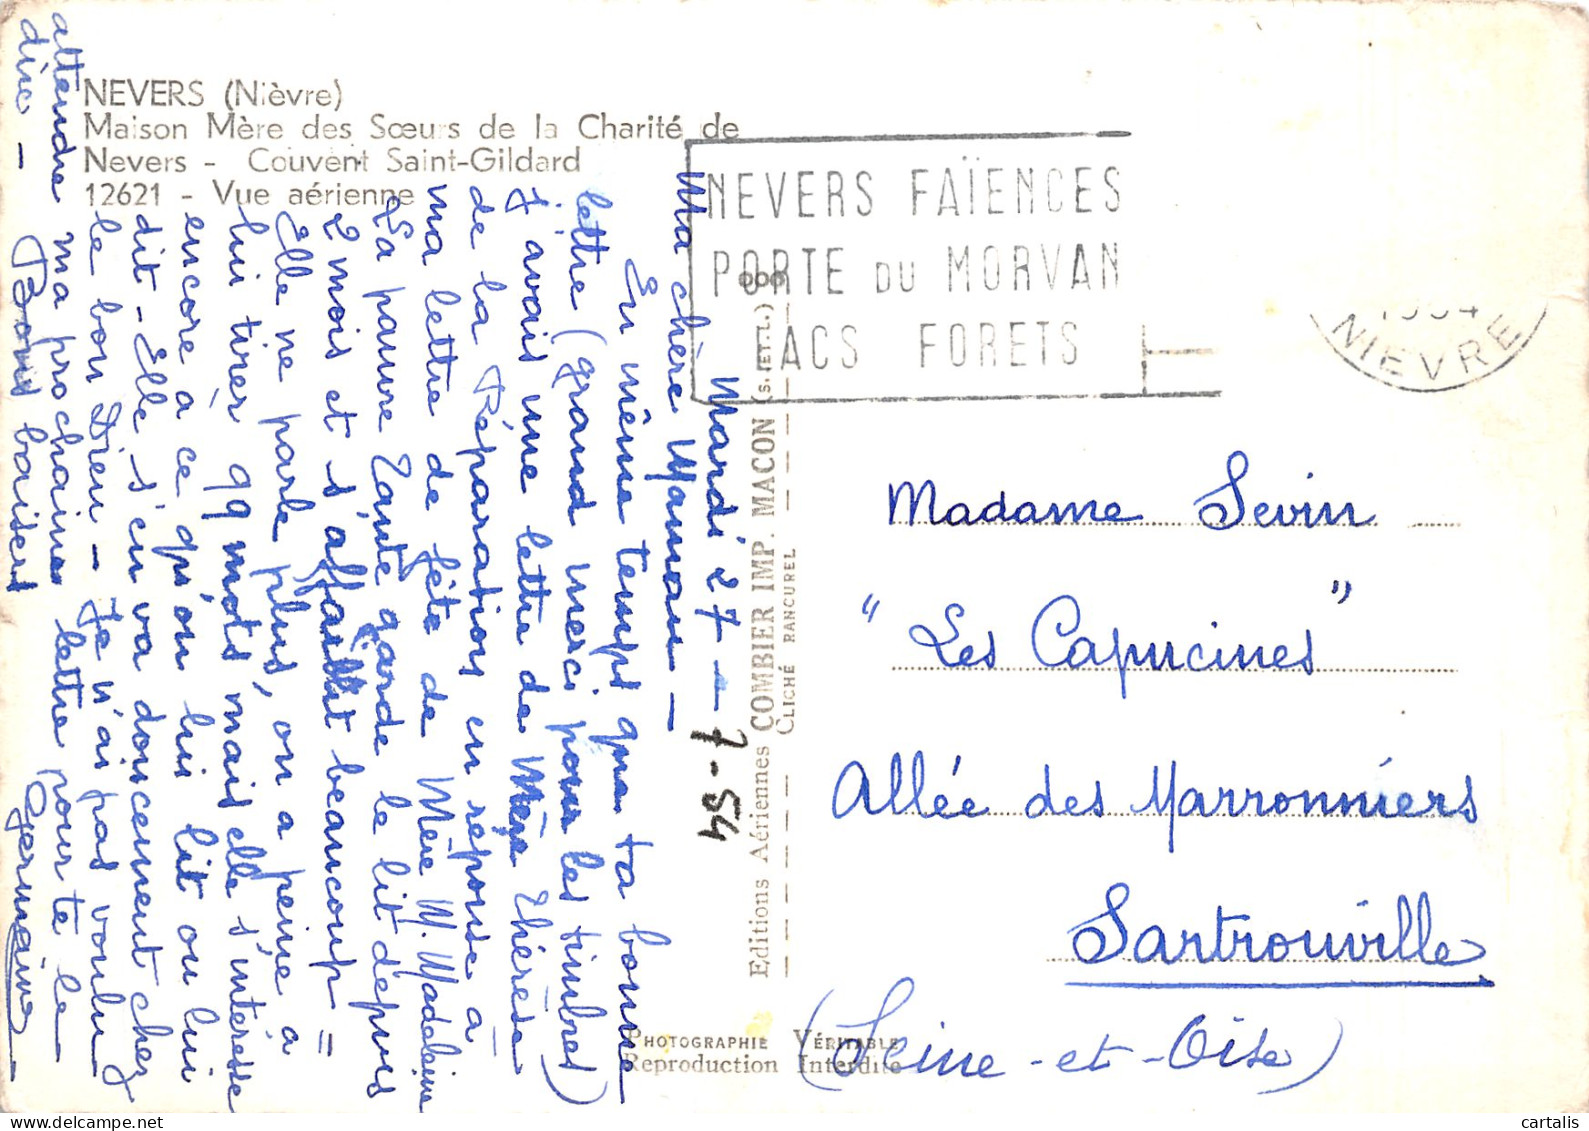 NEVERS (Nièvre)
Maison Mère des Sœurs de la Charité de
Nevers - Couvent Saint-Gildard
12621 - Vue aérienne
NEVERS FAÏENCES
PORTE DU MORVAN
LACS FORETS
1964
NIEVRE
Mardi 27 -
7-54
Ma chère Maman -
En même temps que ta bonne
lettre (grand merci pour les timbres)
j'avais une lettre de Mère Thérèse
de la Réparation en réponse à
ma lettre de fête de Mère M. Madeleine
La pauvre Tante garde le lit depuis
2 mois et s'affaiblit beaucoup =
Elle ne parle plus, on a peine à
lui tirer qq mots mais elle s'intéresse
encore à ce qu'on lui lit ou lui
dit - Elle s'en va doucement chez
le bon Dieu - Je n'ai pas voulu
attendre ma prochaine lettre pour te le
dire - Bons baisers
Germaine -
Editions Aériennes COMBIER IMP. MACON (S.-ET-L.)
CLICHÉ RANCUREL
PHOTOGRAPHIE VÉRITABLE
Reproduction Interdite
Madame Sevin
"Les Capucines"
Allée des Marronniers
Sartrouville
(Seine-et-Oise)
cartalis